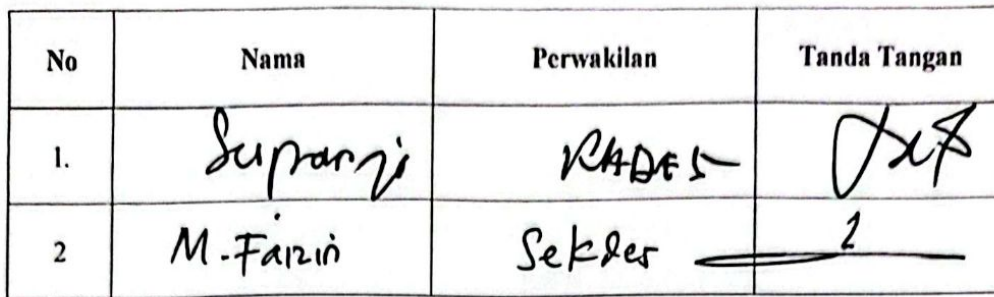 No Nama Perwakilan Tanda Tangan
1. Suparji KADES
2 M. Faizin Sekdes